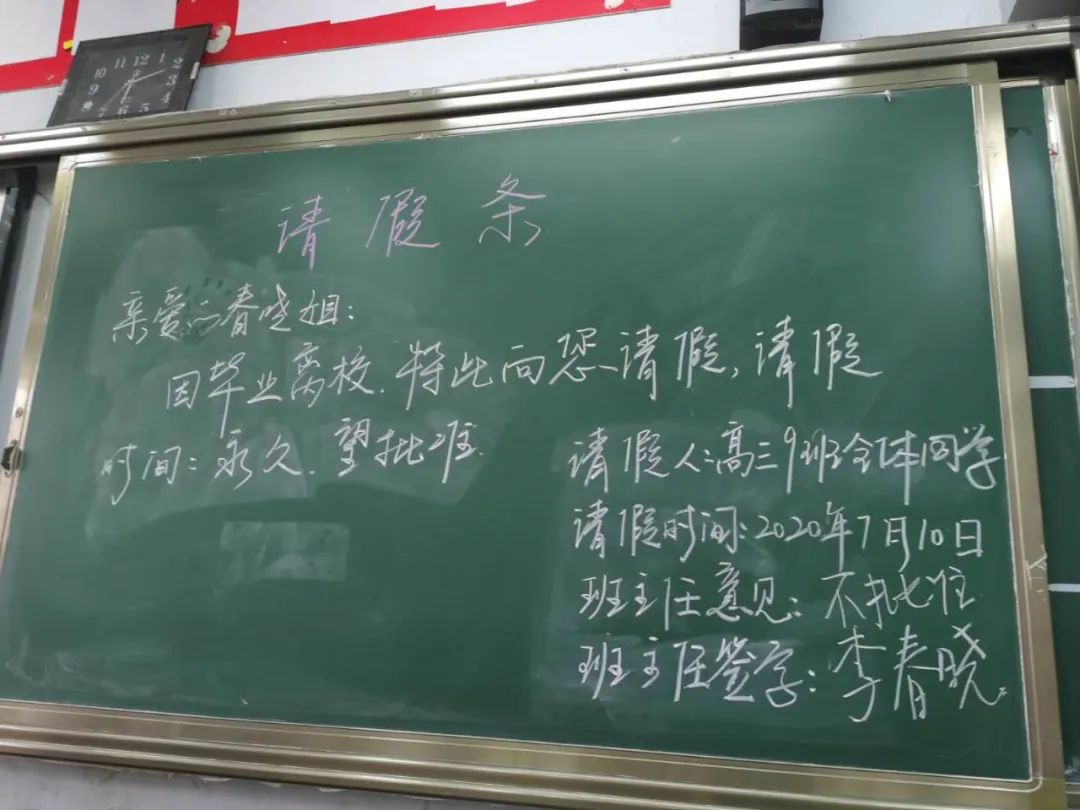 10 11 12 1 2
9 3
8 4
7 6 5
请假条
亲爱的春晓姐:
因毕业离校,特此向您请假,请假
时间:永久.望批准.
请假人:高三9班全体同学
请假时间:2020年7月10日
班主任意见:不批准
班主任签字:李春晓